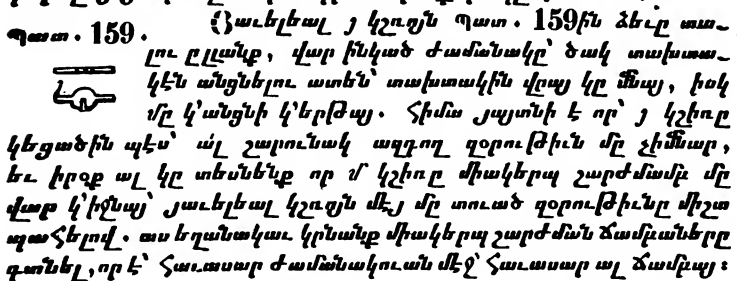 Պատ. 159.
Յաւելեալ յ կշռոյն Պատ. 159ին ձեւը տա-
լու ըլլանք, վար ինկած ժամանակը՝ ծակ տախտա-
կէն անցնելու ատեն՝ տախտակին վրայ կը մնայ, իսկ
մը կ՚անցնի կ՚երթայ. Հիմա յայտնի է որ՝ յ կշիռը
կեցածին պէս՝ ալ շարունակ ազդող զօրութիւն մը չիմնար,
եւ իրօք ալ կը տեսնենք որ մ կշիռը միակերպ շարժմամբ մը
վար կ՚իջնայ՝ յաւելեալ կշռոյն մէջ մը տուած զօրութիւնը միշտ
պահելով. աս եղանակաւ կրնանք միակերպ շարժման ճամբաները
գտնել, որ է՝ հաւասար ժամանակուան մէջ՝ հաւասար ալ ճամբայ։